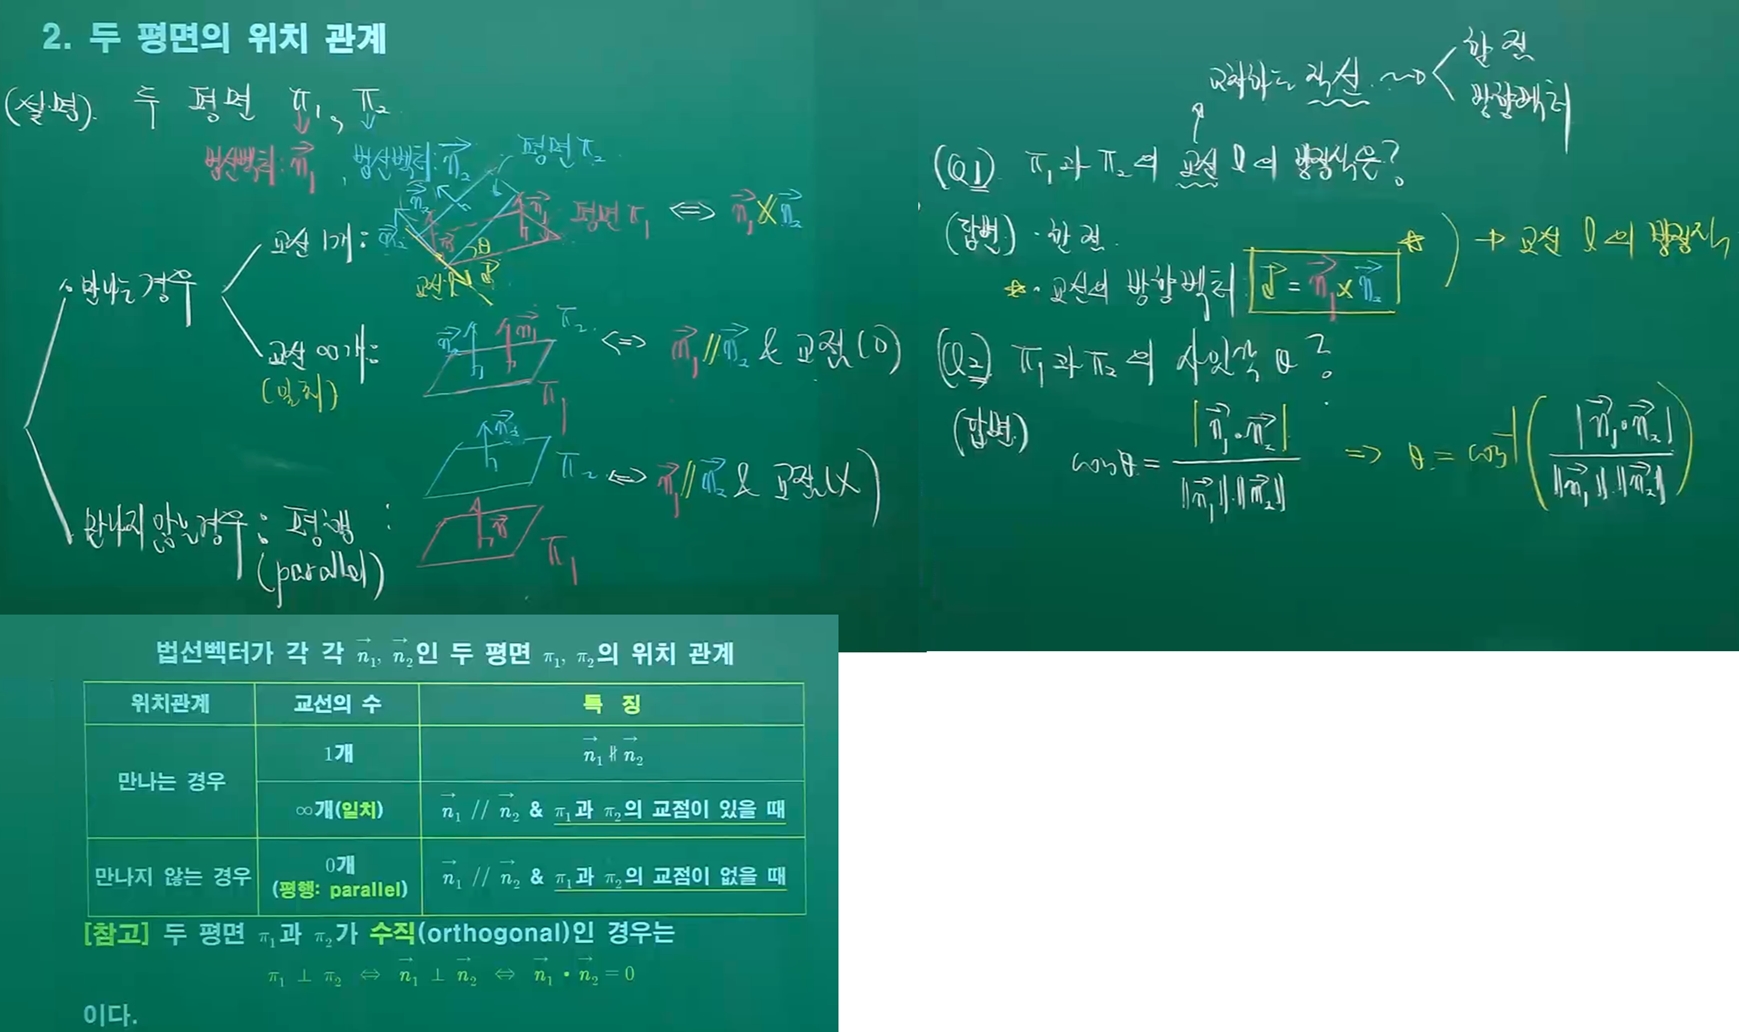 2. 두 평면의 위치 관계
(설명). 두 평면 π₁, π₂
법선벡터: n⃗₁, 법선벡터: n⃗₂
평면 π₂
n⃗₂ n⃗₁ 평면 π₁ ⇔ n⃗₁ ∦ n⃗₂
θ
교선 l d⃗
만나는 경우
교선 1개:
교선 ∞개:
(일치)
n⃗₂ n⃗₁ π₂ ⇔ n⃗₁ // n⃗₂ & 교점(O)
π₁
n⃗₂
π₂ ⇔ n⃗₁ // n⃗₂ & 교점(X)
만나지 않는 경우: 평행
(parallel)
n⃗ π₁
교차하는 직선
한 점
방향벡터
(Q1) π₁과 π₂의 교선 l의 방정식은?
(답변) · 한 점
· 교선의 방향벡터 d⃗ = n⃗₁ × n⃗₂ → 교선 l의 방정식
(Q2) π₁과 π₂의 사잇각 θ?
(답변)
cosθ = |n⃗₁·n⃗₂| / ‖n⃗₁‖·‖n⃗₂‖ ⇒ θ = cos⁻¹(|n⃗₁·n⃗₂| / ‖n⃗₁‖·‖n⃗₂‖)
법선벡터가 각 각 n⃗₁, n⃗₂인 두 평면 π₁, π₂의 위치 관계
위치관계 교선의 수 특 징
만나는 경우 1개 n⃗₁ ∦ n⃗₂
∞개(일치) n⃗₁ // n⃗₂ & π₁과 π₂의 교점이 있을 때
만나지 않는 경우 0개 (평행: parallel) n⃗₁ // n⃗₂ & π₁과 π₂의 교점이 없을 때
[참고] 두 평면 π₁과 π₂가 수직(orthogonal)인 경우는
π₁ ⊥ π₂ ⇔ n⃗₁ ⊥ n⃗₂ ⇔ n⃗₁ • n⃗₂ = 0
이다.